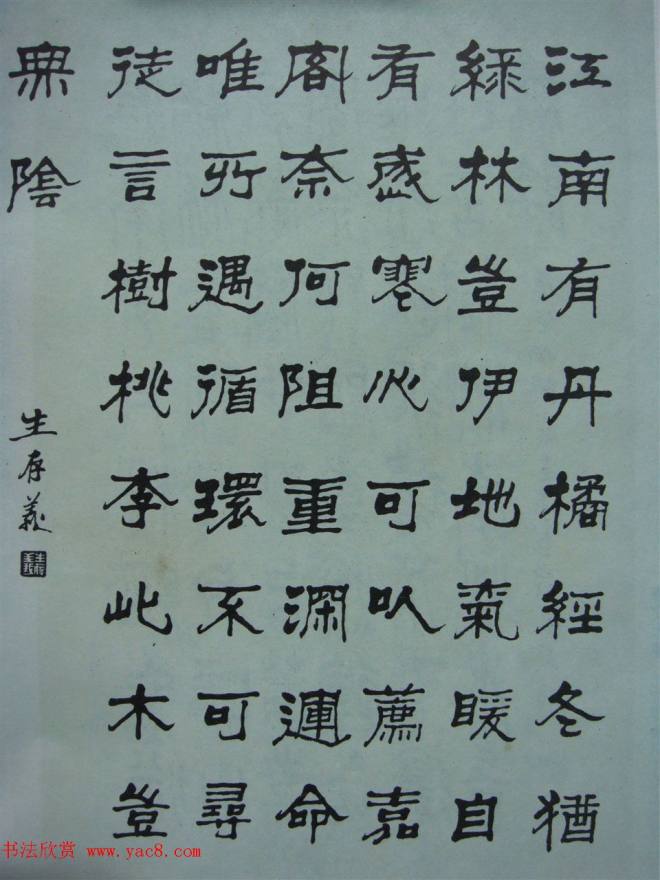 江南有丹橘經冬猶
綠林豈伊地氣暖自
有歲寒心可以薦嘉
客奈何阻重深運命
唯所遇循環不可尋
徒言樹桃李此木豈
無陰
生存義
书法欣赏 www.yac8.com